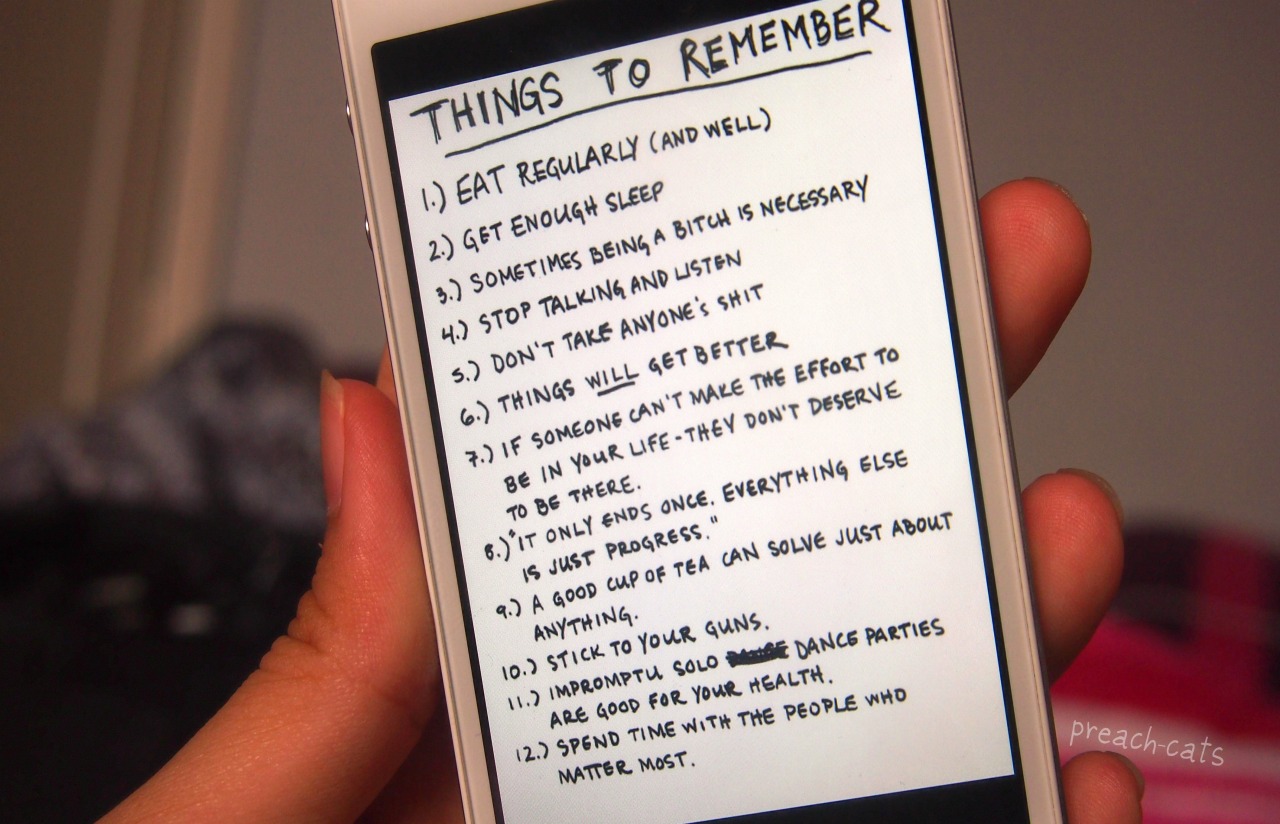 THINGS TO REMEMBER
1.) EAT REGULARLY (AND WELL)
2.) GET ENOUGH SLEEP
3.) SOMETIMES BEING A BITCH IS NECESSARY
4.) STOP TALKING AND LISTEN
5.) DON'T TAKE ANYONE'S SHIT
6.) THINGS WILL GET BETTER
7.) IF SOMEONE CAN'T MAKE THE EFFORT TO
BE IN YOUR LIFE - THEY DON'T DESERVE
TO BE THERE.
8.) "IT ONLY ENDS ONCE. EVERYTHING ELSE
IS JUST PROGRESS."
9.) A GOOD CUP OF TEA CAN SOLVE JUST ABOUT
ANYTHING.
10.) STICK TO YOUR GUNS.
11.) IMPROMPTU SOLO DANCE PARTIES
ARE GOOD FOR YOUR HEALTH.
12.) SPEND TIME WITH THE PEOPLE WHO
MATTER MOST.
preach-cats